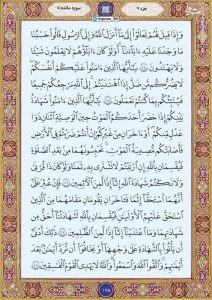 جزء ۷
سوره مائده ۵
وَإِذَا قِيلَ لَهُمْ تَعَالَوْا۟ إِلَىٰ مَآ أَنزَلَ ٱللَّهُ وَإِلَى ٱلرَّسُولِ قَالُوا۟ حَسْبُنَا
مَا وَجَدْنَا عَلَيْهِ ءَابَآءَنَآ أَوَلَوْ كَانَ ءَابَآؤُهُمْ لَا يَعْلَمُونَ شَيْـًٔا
وَلَا يَهْتَدُونَ ﴿١٠٤﴾ يَـٰٓأَيُّهَا ٱلَّذِينَ ءَامَنُوا۟ عَلَيْكُمْ أَنفُسَكُمْ
لَا يَضُرُّكُم مَّن ضَلَّ إِذَا ٱهْتَدَيْتُمْ إِلَى ٱللَّهِ مَرْجِعُكُمْ جَمِيعًا
فَيُنَبِّئُكُم بِمَا كُنتُمْ تَعْمَلُونَ ﴿١٠٥﴾ يَـٰٓأَيُّهَا ٱلَّذِينَ ءَامَنُوا۟ شَهَـٰدَةُ
بَيْنِكُمْ إِذَا حَضَرَ أَحَدَكُمُ ٱلْمَوْتُ حِينَ ٱلْوَصِيَّةِ ٱثْنَانِ ذَوَا
عَدْلٍ مِّنكُمْ أَوْ ءَاخَرَانِ مِنْ غَيْرِكُمْ إِنْ أَنتُمْ ضَرَبْتُمْ فِى
ٱلْأَرْضِ فَأَصَـٰبَتْكُم مُّصِيبَةُ ٱلْمَوْتِ تَحْبِسُونَهُمَا مِنۢ بَعْدِ ٱلصَّلَوٰةِ
فَيُقْسِمَانِ بِٱللَّهِ إِنِ ٱرْتَبْتُمْ لَا نَشْتَرِى بِهِۦ ثَمَنًا وَلَوْ كَانَ ذَا قُرْبَىٰ
وَلَا نَكْتُمُ شَهَـٰدَةَ ٱللَّهِ إِنَّآ إِذًا لَّمِنَ ٱلْـَٔاثِمِينَ ﴿١٠٦﴾ فَإِنْ عُثِرَ عَلَىٰٓ
أَنَّهُمَا ٱسْتَحَقَّآ إِثْمًا فَـَٔاخَرَانِ يَقُومَانِ مَقَامَهُمَا مِنَ ٱلَّذِينَ
ٱسْتَحَقَّ عَلَيْهِمُ ٱلْأَوْلَيَـٰنِ فَيُقْسِمَانِ بِٱللَّهِ لَشَهَـٰدَتُنَآ أَحَقُّ مِن
شَهَـٰدَتِهِمَا وَمَا ٱعْتَدَيْنَآ إِنَّآ إِذًا لَّمِنَ ٱلظَّـٰلِمِينَ ﴿١٠٧﴾ ذَٰلِكَ أَدْنَىٰٓ
أَن يَأْتُوا۟ بِٱلشَّهَـٰدَةِ عَلَىٰ وَجْهِهَآ أَوْ يَخَافُوٓا۟ أَن تُرَدَّ أَيْمَـٰنٌۢ بَعْدَ
أَيْمَـٰنِهِمْ وَٱتَّقُوا۟ ٱللَّهَ وَٱسْمَعُوا۟ وَٱللَّهُ لَا يَهْدِى ٱلْقَوْمَ ٱلْفَـٰسِقِينَ ﴿١٠٨﴾
١٢٥